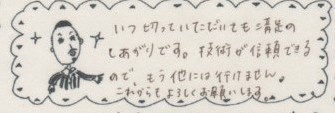 いつ切っていただいても満足の
しあがりです。技術が信頼できる
ので、もう他には行けません。
これからもよろしくお願いします。